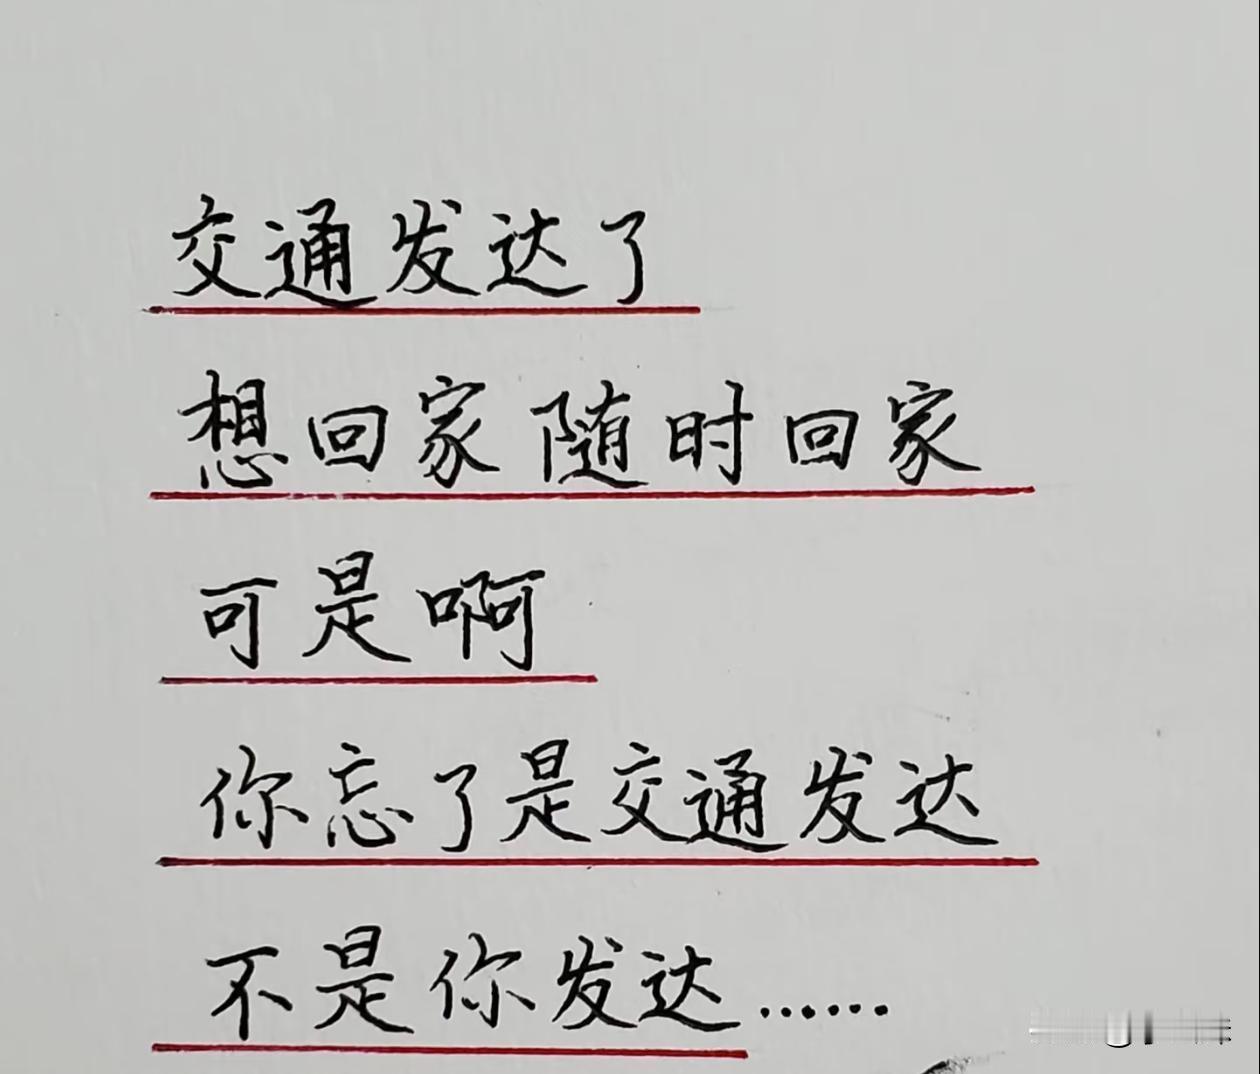 交通发达了
想回家随时回家
可是啊
你忘了是交通发达
不是你发达……